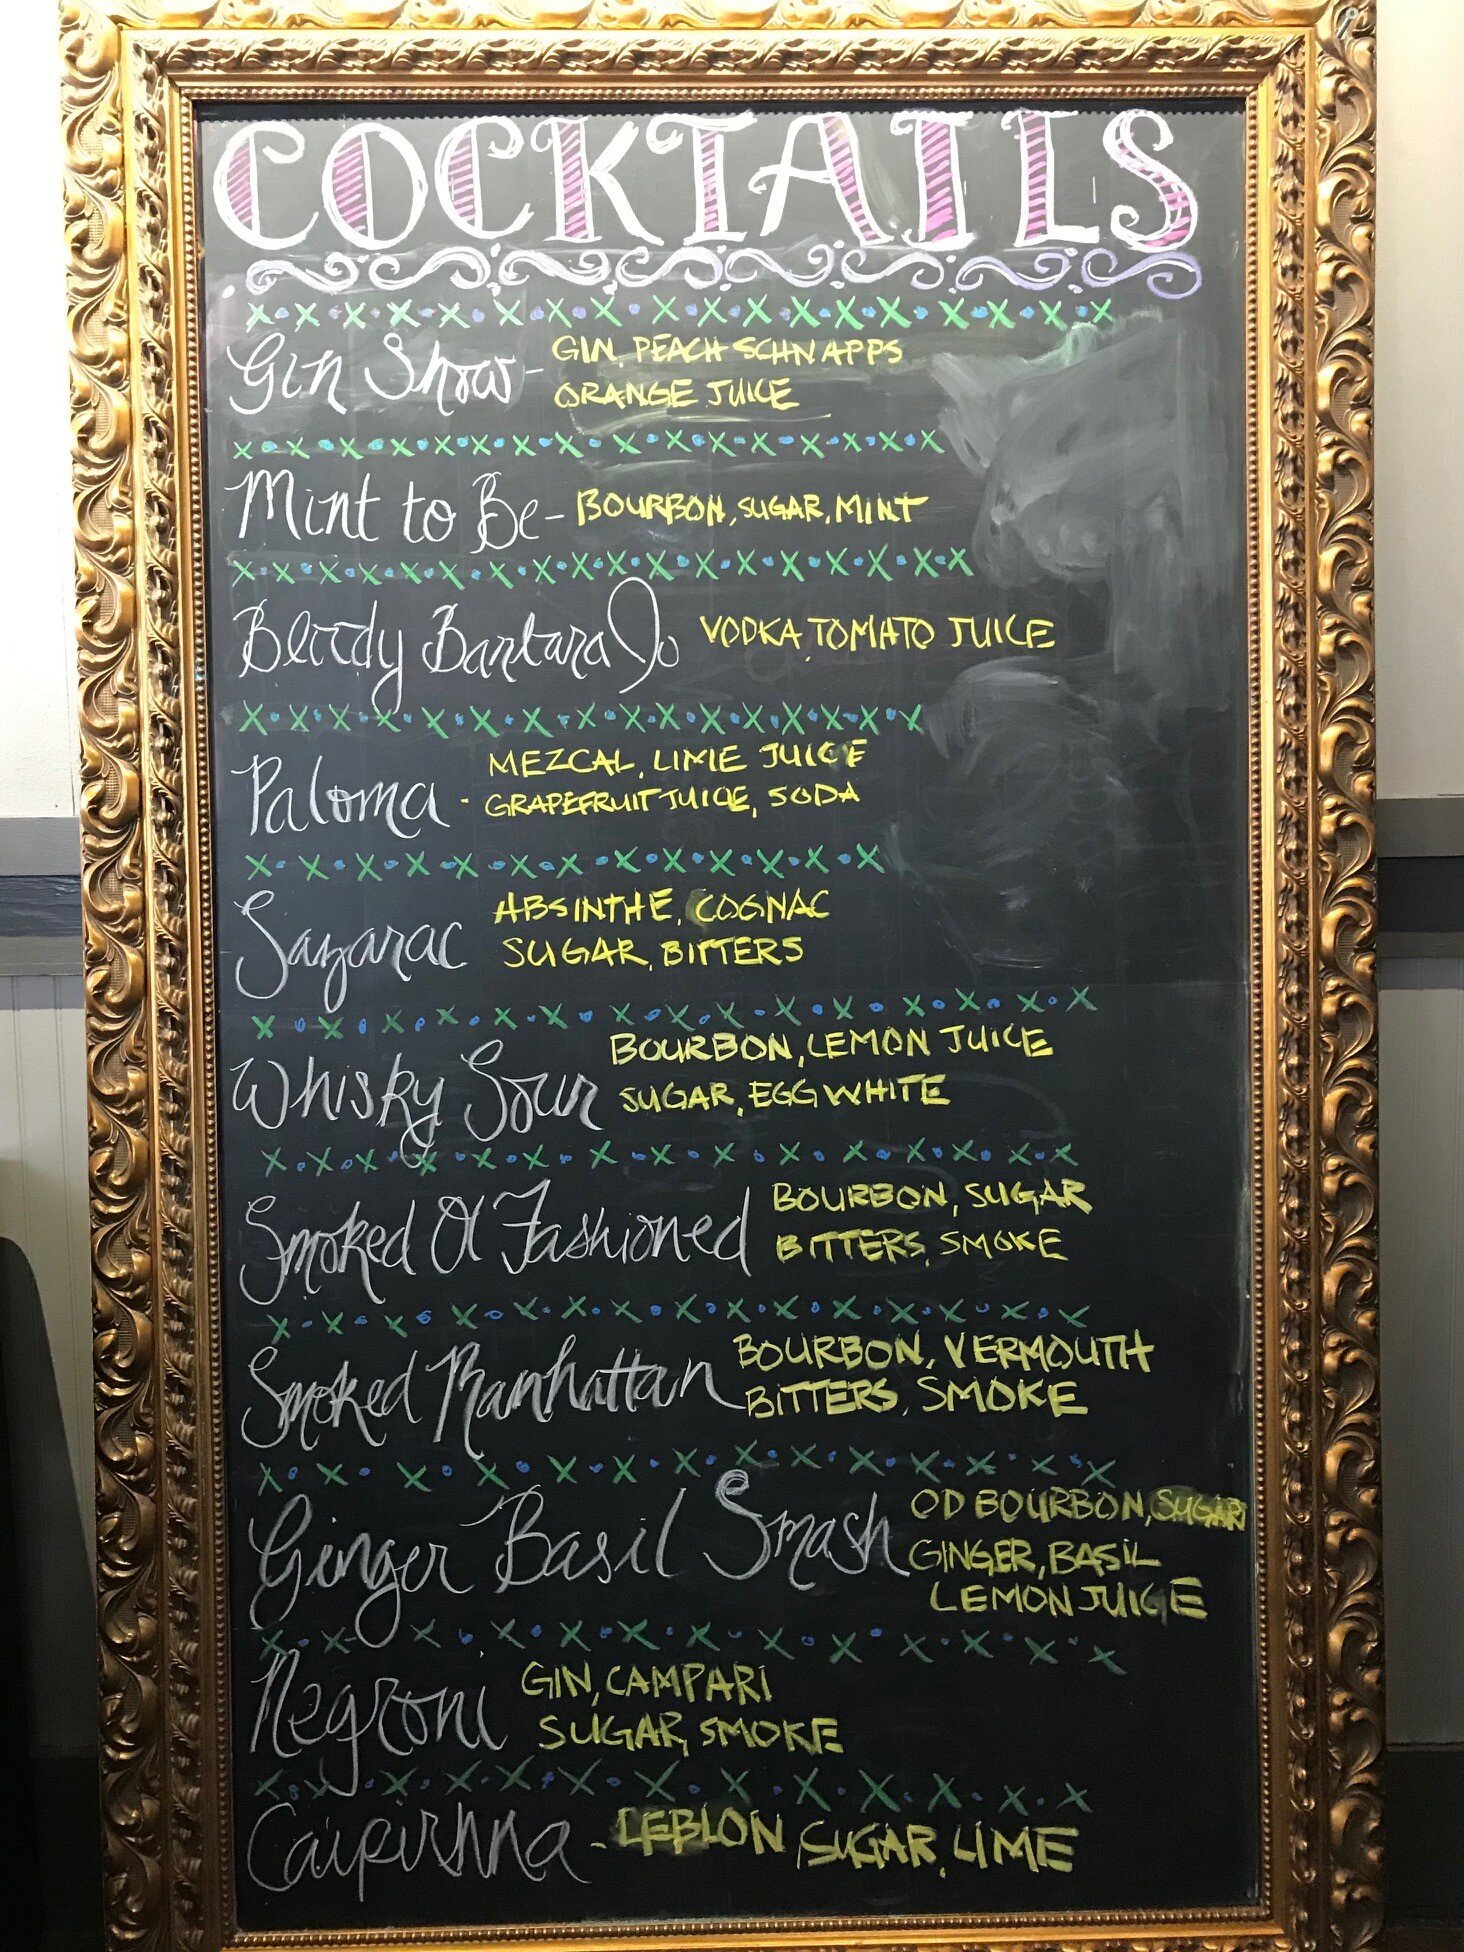 COCKTAILS
Gin Show - GIN, PEACH SCHNAPPS
ORANGE JUICE
Mint to Be - BOURBON, SUGAR, MINT
Bloody Barbara Jo VODKA, TOMATO JUICE
Paloma - MEZCAL, LIME JUICE
GRAPEFRUIT JUICE, SODA
Sazarac ABSINTHE, COGNAC
SUGAR, BITTERS
Whisky Sour BOURBON, LEMON JUICE
SUGAR, EGG WHITE
Smoked Ol Fashioned BOURBON, SUGAR
BITTERS, SMOKE
Smoked Manhattan BOURBON, VERMOUTH
BITTERS, SMOKE
Ginger Basil Smash OD BOURBON, SUGAR
GINGER, BASIL
LEMON JUICE
Negroni GIN, CAMPARI
SUGAR, SMOKE
Caipirhna - LEBLON, SUGAR, LIME